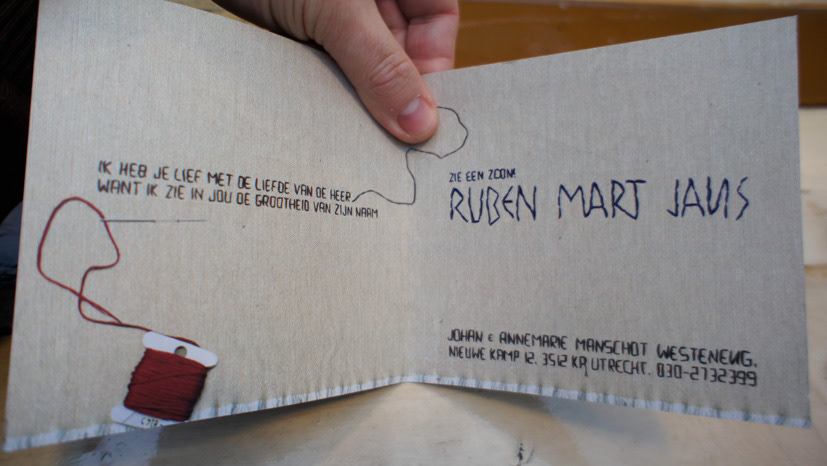 IK HEB JE LIEF MET DE LIEFDE VAN DE HEER
WANT IK ZIE IN JOU DE GROOTHEID VAN ZIJN NAAM
ZIE EEN ZOON!
RUBEN MART JANS
JOHAN & ANNEMARIE MANSCHOT WESTENENG.
NIEUWE KAMP 12. 3512 KP UTRECHT. 030-2732399